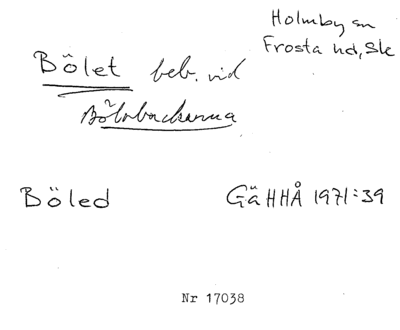 Holmby sn
Frosta hd, Sk
Bölet beb. vid
Bölsbackarna
Böled GäHHÅ 1971:39
Nr 17038